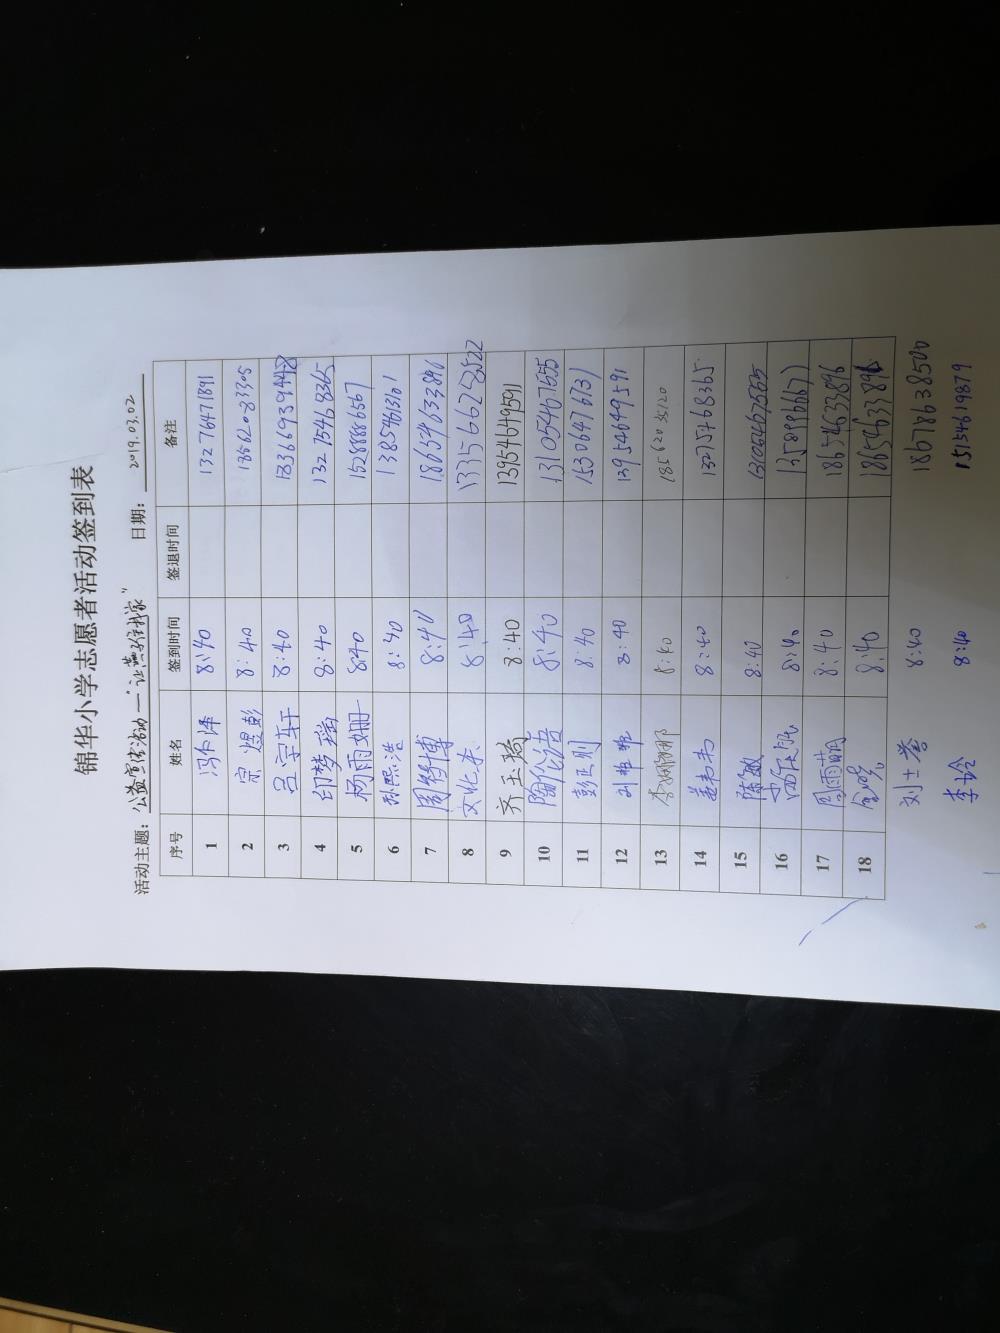 锦华小学志愿者活动签到表
活动主题：公益宣传活动——"让燕子住我家" 日期：2019.03.02
序号 姓名 签到时间 签退时间 备注
1 8:40 13276471891
2 宋煜彭 8:40 18562083305
3 吕宇轩 8:40
4 印梦瑶 8:40 13275468365
5 杨雨姗 8:40 15288886567
6 孙熙浩 8:40 13854613161
7 周梓博 8:40 18654633896
8 8:40 13356628522
9 齐玉琦 8:40 13954649591
10 陶伦语 8:40 13105467655
11 彭正则 8:40 15306476731
12 8:40 13954649591
13 李娜娜 8:40
14 姜韦韦 8:40 13275468365
15 陈敏 8:40
16 8:40 13589996667
17 周雨萌 8:40 18654633896
18 8:40 18654633896
刘士誉 8:40 18678638500
李玲 8:40 15154619879